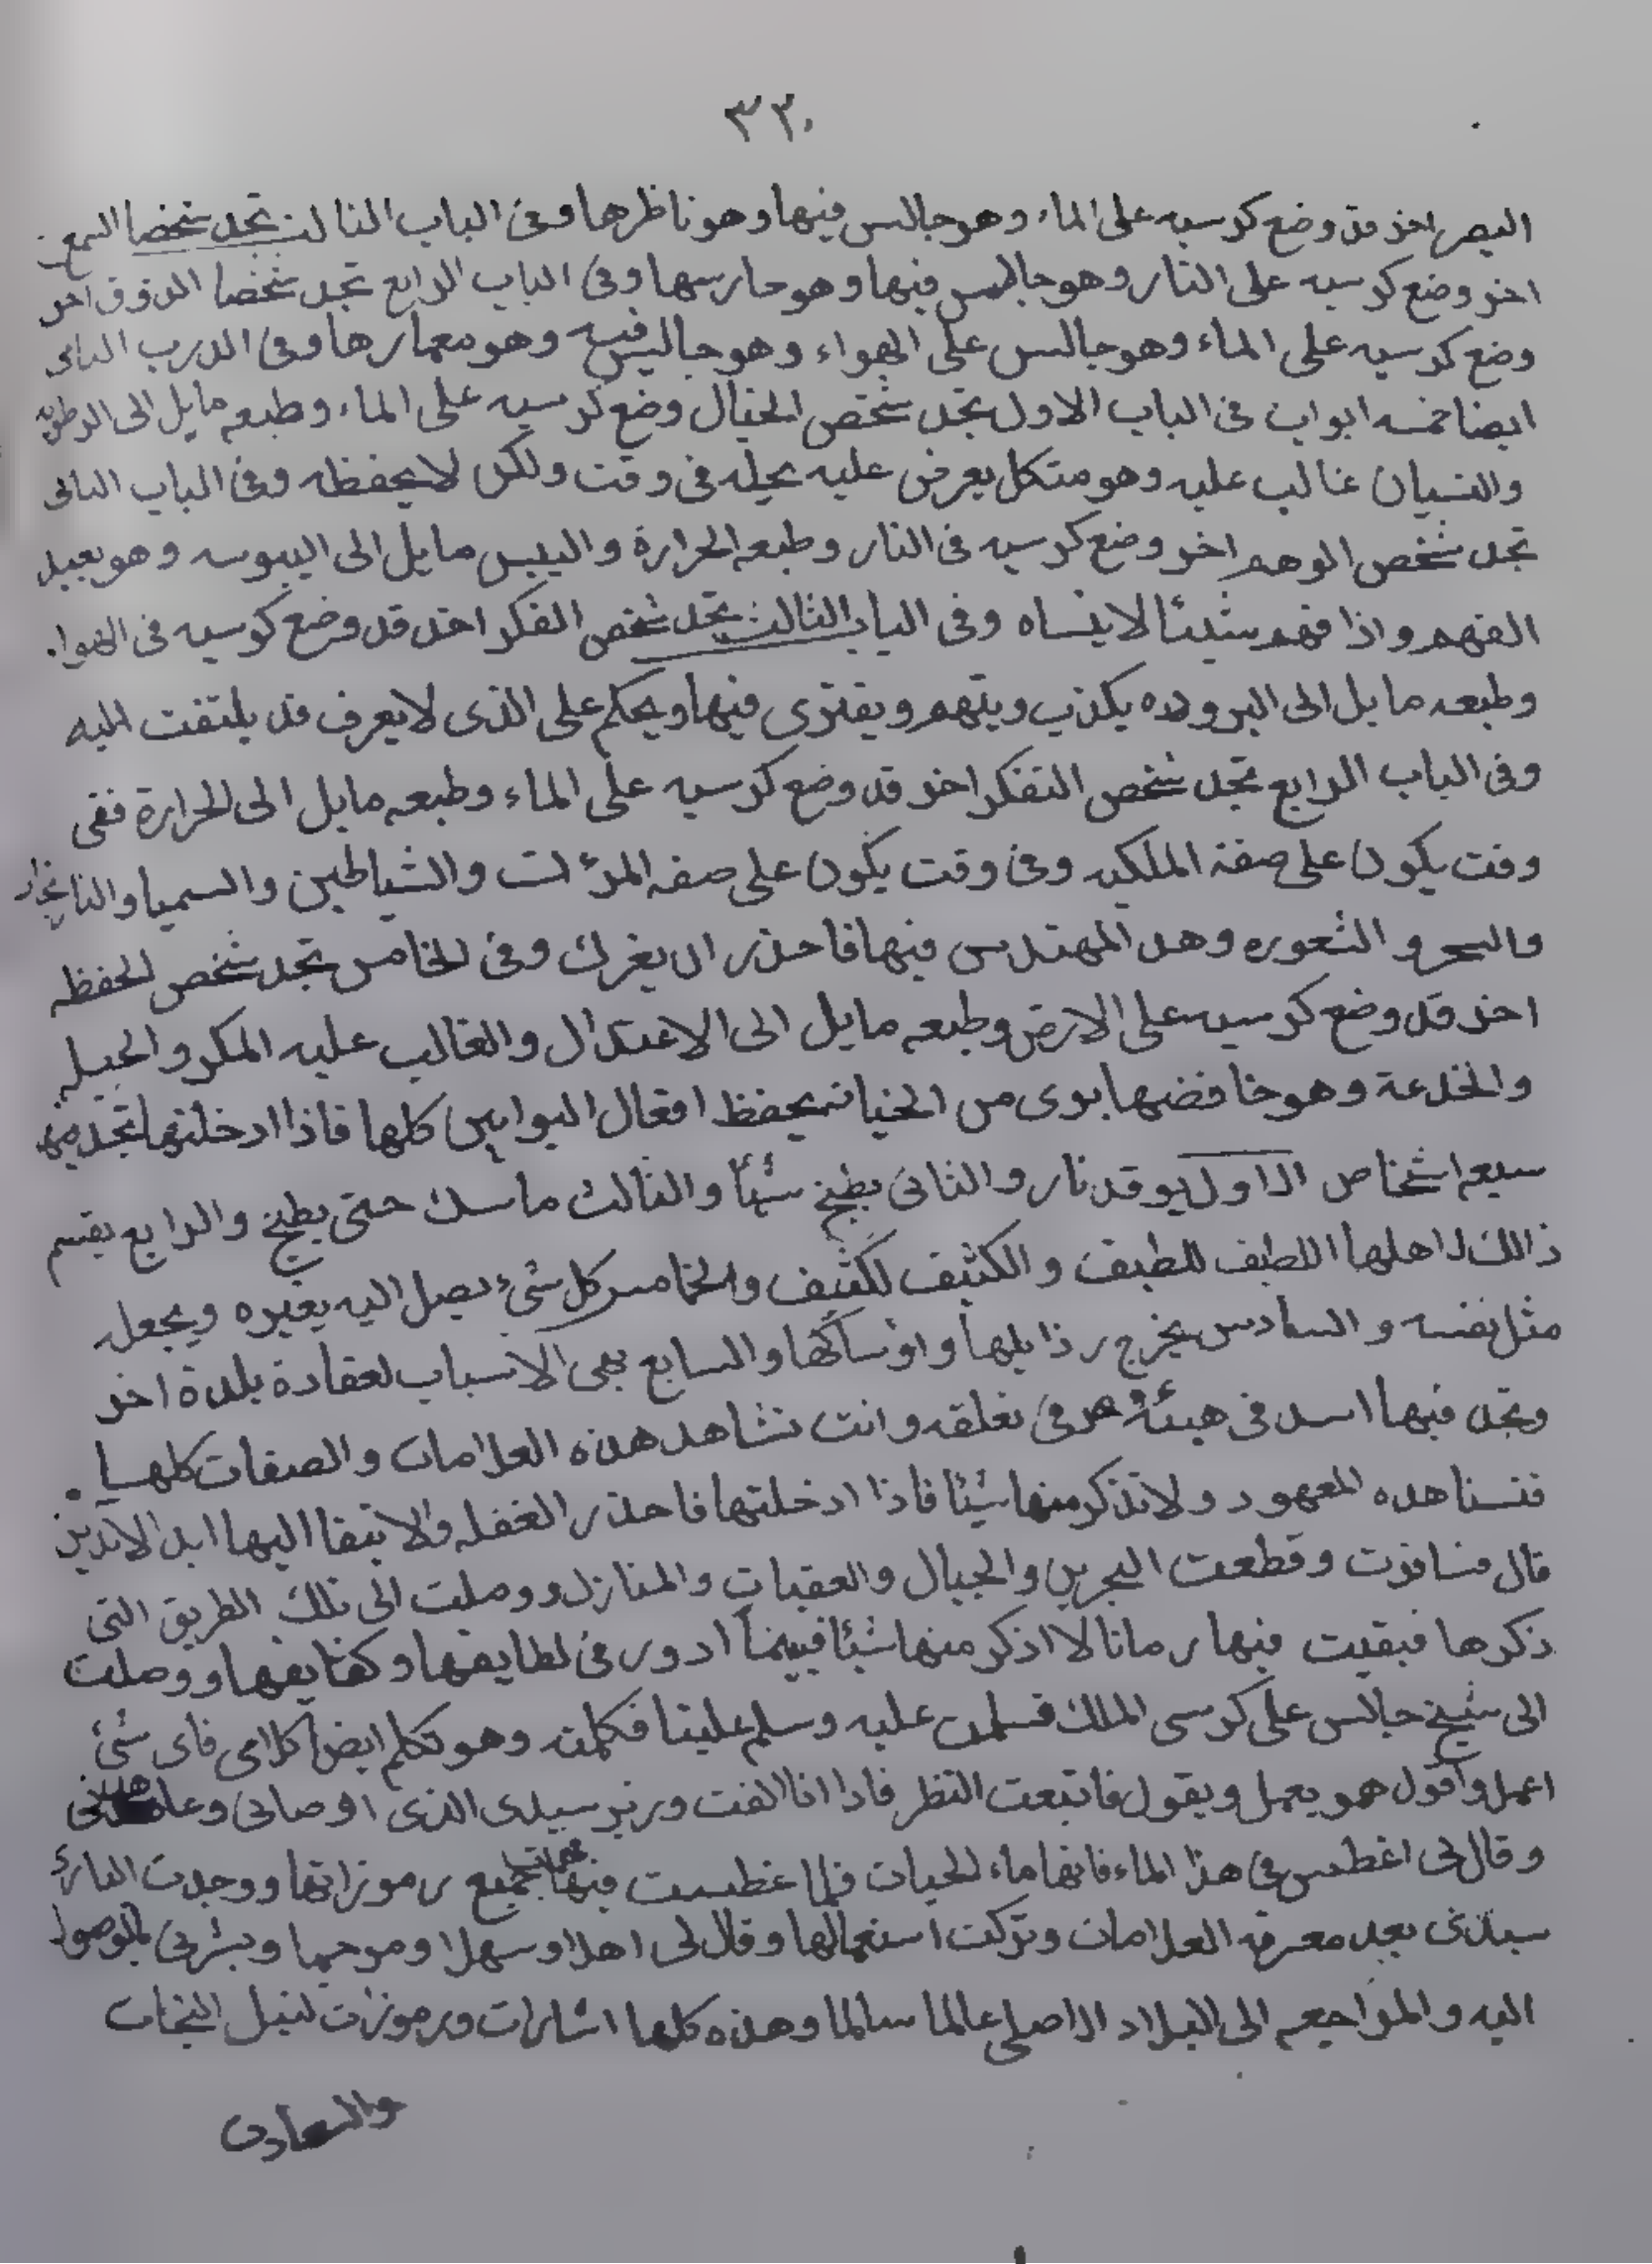 ٣٢٠
البصر اخر قد وضع كرسيه على الماء وهو جالس فيها وهو ناظرها وفى الباب الثالث تجد شخصا السمع
اخر وضع كرسيه على النار وهو جالس فيها وهو حارسها وفى الباب الرابع تجد شخصا الذوق اخر
وضع كرسيه على الماء وهو جالس على الهواء وهو جاليس فيه وهو معمارها وفى الدرب الثانى
ايضا خمسه ابواب فى الباب الاول تجد شخص الخيال وضع كرسيه على الماء وطبعه مايل الى الرطوبه
والنسيان غالب عليه وهو متكل يعرض عليه يحيله فى وقت ولكن لا يحفظه وفى الباب الثانى
تجد شخص الوهم اخر وضع كرسيه فى النار وطبعه الحرارة واليبس مايل الى اليبوسه وهو بعيد
الفهم واذا فهم شيئا لا ينساه وفى الباب الثالث تجد شخص الفكر اخد قد وضع كوسيه فى الهواء
وطبعه مايل الى البروده يكذب ويتهم ويفترى فيها ويحكم على الذى لا يعرف قد يلتفت اليه
وفى الباب الرابع تجد شخص التفكر اخر قد وضع كرسيه على الماء وطبعه مايل الى الحرارة ففى
وقت يكون على صفة الملكيه وفى وقت يكون على صفه المرءات والشياطين والسميا والنايخار
والسحر والشعوره وهد المهتدس فيها فاحذر ان يغرك وفى الخامس تجد شخص الحفظه
اخر قد وضع كرسيه على الارض وطبعه مايل الى الاعتدال والغالب عليه المكر والحيله
والخدعة وهو حافضها بوى من الخيانه يحفظ افعال البوابين كلها فاذا ادخلتها تجد فيها
سبعه اشخاص الاول يوقد نار والثانى يطبخ شيأ والثالث ماسك حتى يطبخ والرابع يقسم
ذالك لاهلها اللطيف للطيف والكثيف لكثيف والخامس كل شئ يصل اليه يغيره ويجعله
مثل نفسه والسادس يخرج رذايلها واوساكها والسابع يهى الاسباب لعقادة بلدة اخر
وتجد فيها اسد فى هيئة وهو فى نعلقه وانت تشاهد هذه العلامات والصفات كلها
فتسنا هده المعهود ولا تذكر منها شيئا فاذا ادخلتها فاحذر الغفله ولا تبقا اليها ابد الابدين
قال فسافوت وقطعت البحرين والجبال والعقبات والمنازل ووصلت الى تلك الطريق التى
ذكرها فبقيت فيها رمانا لا اذكر منها شيئا فبينما ادور فى لطايفها وكثايفها ووصلت
الى شيخ جالس على كرسى الملك فسلمت عليه وسلم علينا فكلمته وهو تكلم ايضا كلامى فاى شئ
اعمل واقول هو يعمل ويقول فاتبعت النظر فاذا انا الفت وزير سيدى الذى اوصانى وعاهدنى
وقال لى اغطس فى هذا الماء فانها ماء الحيات فلما غطست فيها فهمت جميع رموزاتها ووجدت البارئ
سيدى بعد معرفه العلامات وتركت استعمالها وقال لى اهلا وسهلا ومرحبا وبشرنى بالوصول
اليه والمراجعه الى البلاد الاصلى عالما سالما وهذه كلها اشارات ورموزات لنيل النجات
والسعادت